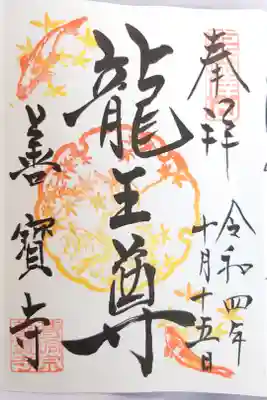 奉拝
令和四年
十月十五日
龍王尊
善寳寺